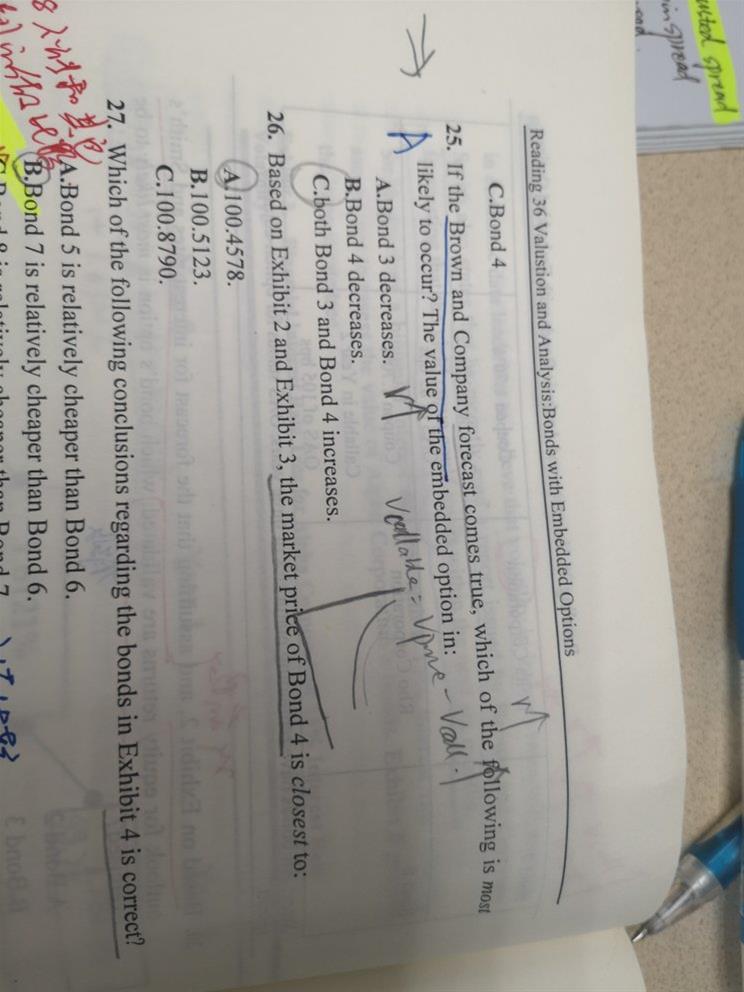 usted spread
in spread
Reading 36 Valustion and Analysis:Bonds with Embedded Options
C.Bond 4
25. If the Brown and Company forecast comes true, which of the following is most
likely to occur? The value of the embedded option in:
A
A.Bond 3 decreases.
B.Bond 4 decreases.
Vcallable = Vpure - Vcall.
C.both Bond 3 and Bond 4 increases.
26. Based on Exhibit 2 and Exhibit 3, the market price of Bond 4 is closest to:
A.100.4578.
B.100.5123.
C.100.8790.
27. Which of the following conclusions regarding the bonds in Exhibit 4 is correct?
A.Bond 5 is relatively cheaper than Bond 6.
B.Bond 7 is relatively cheaper than Bond 6.